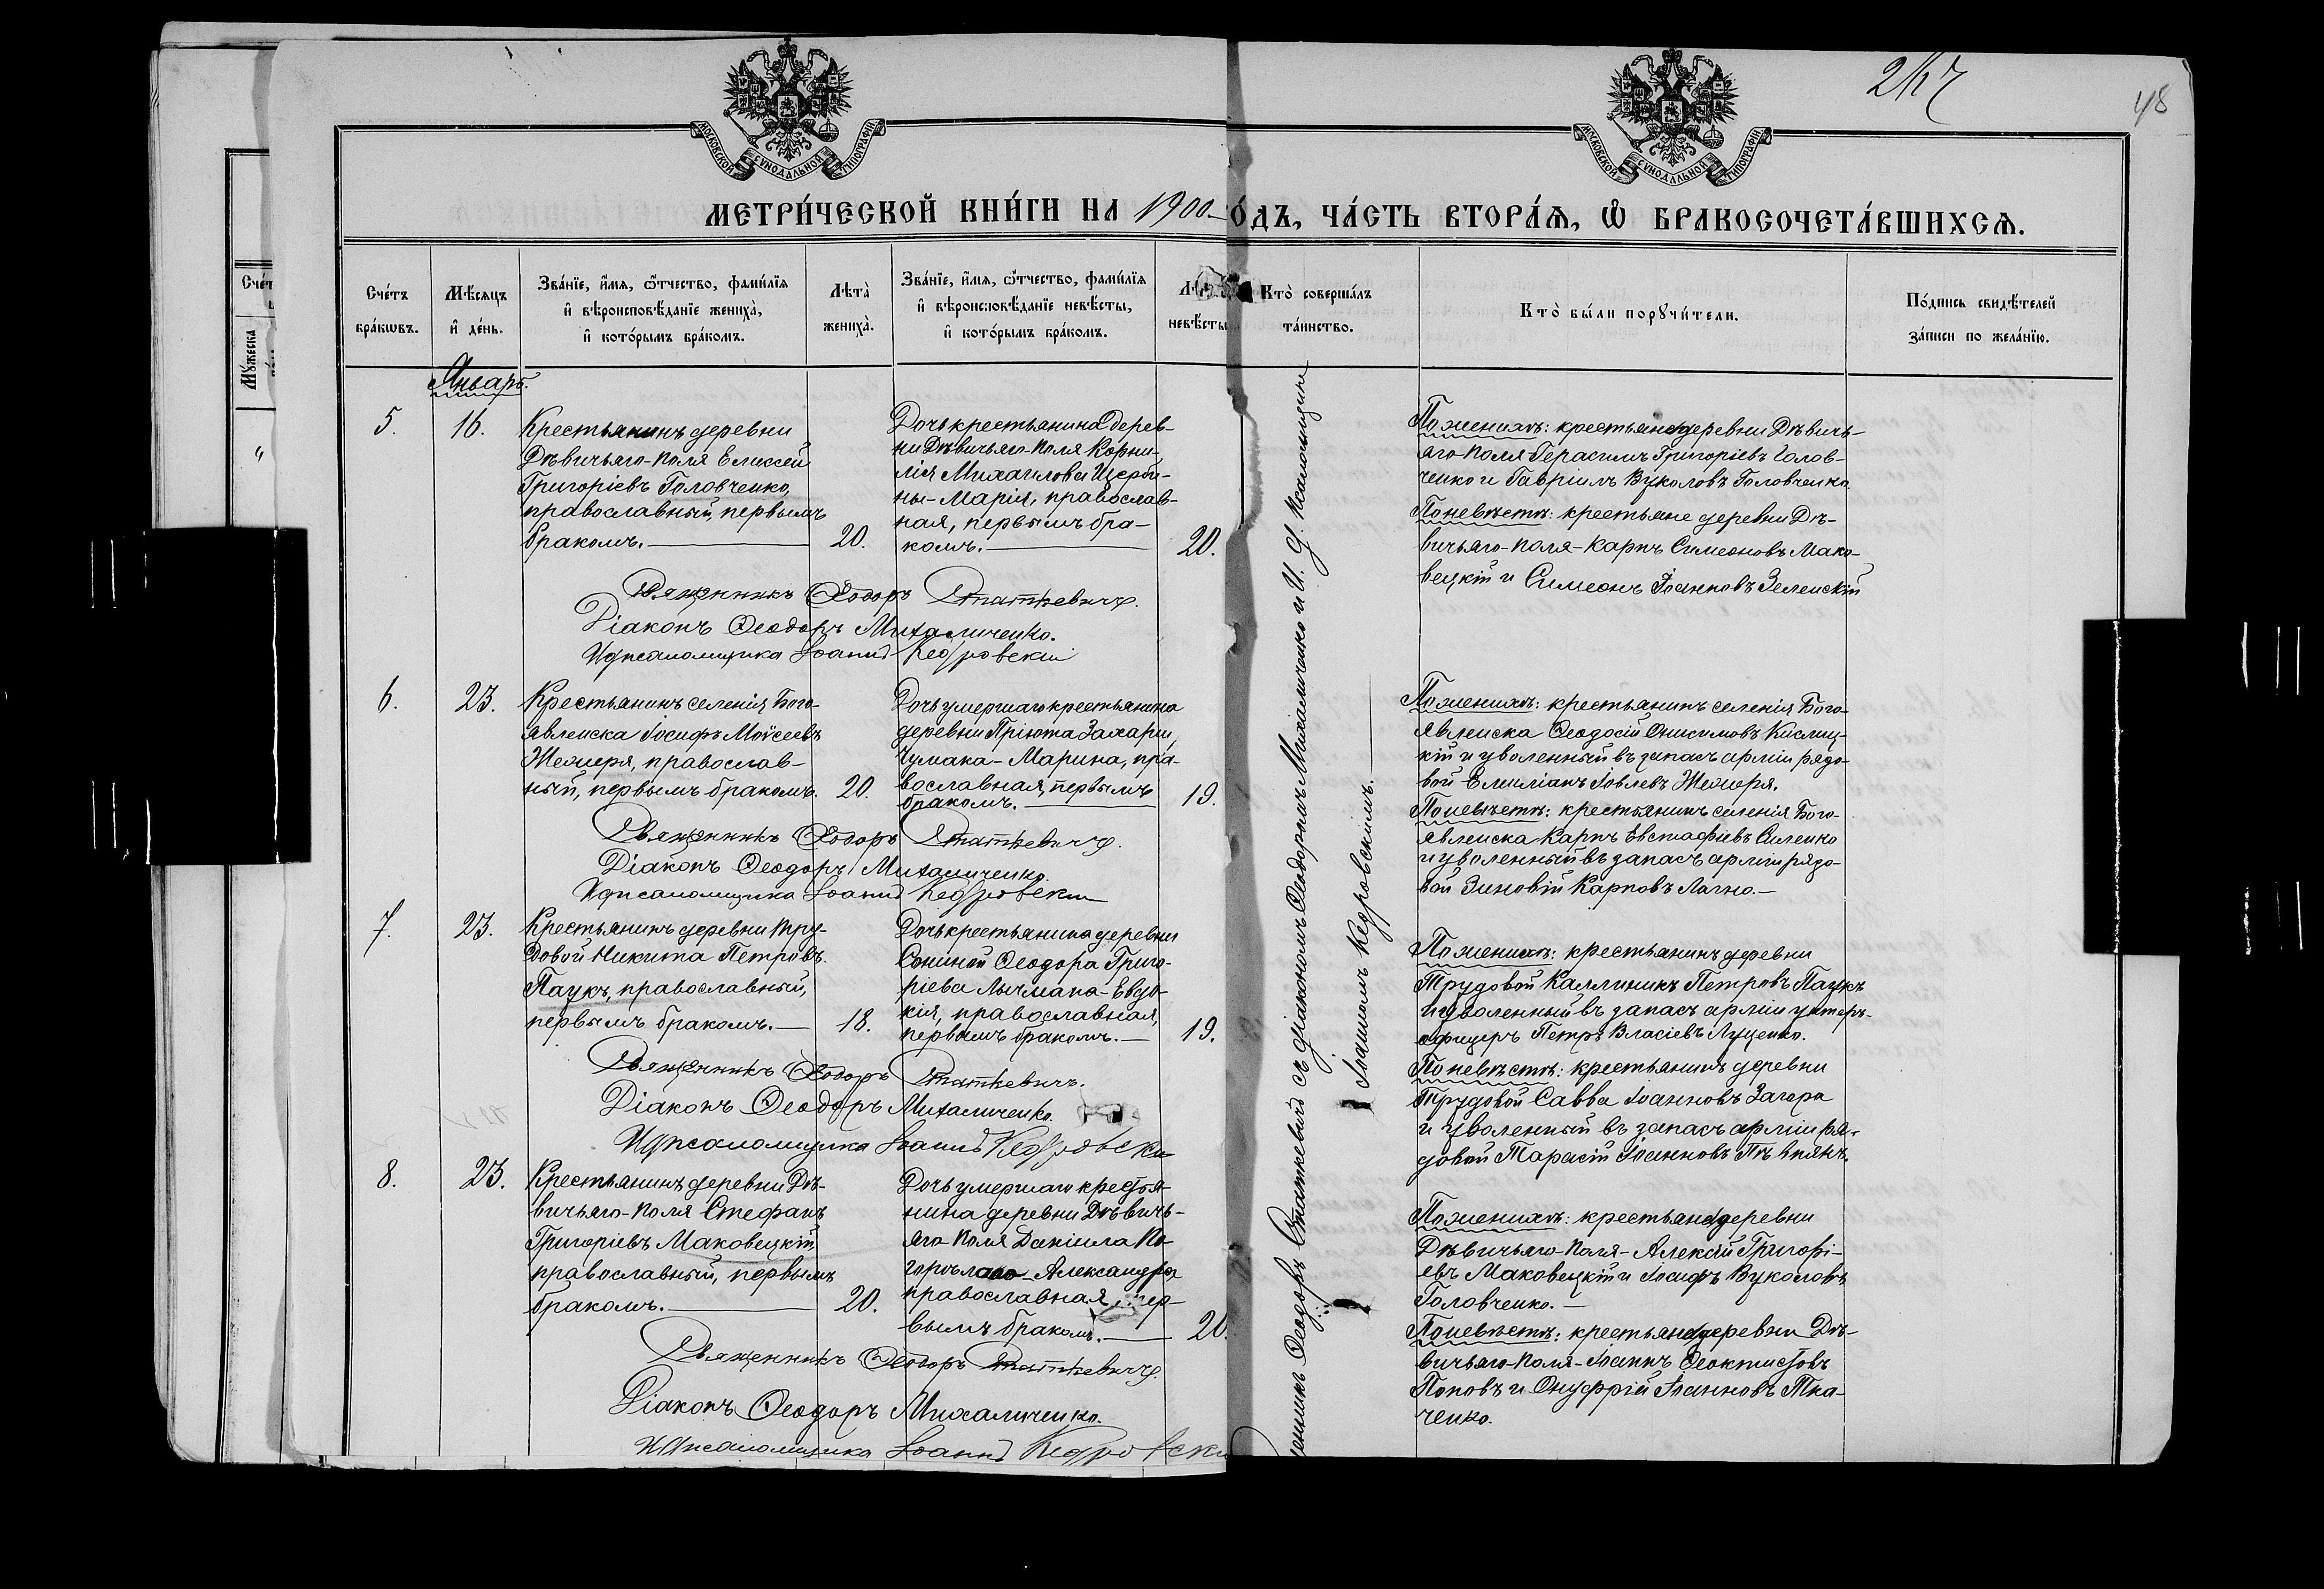 МОСКОВСКОЙ СѴНОДАЛЬНОЙ ТИПОГРАФІИ
МОСКОВСКОЙ СѴНОДАЛЬНОЙ ТИПОГРАФІИ
48
МЕТРИ́ЧЕСКОЙ КНИ́ГИ НА 1900 О́ДЪ, ЧА́СТЬ ВТОРА́Ѧ, Ѡ҆ БРАКОСОЧЕТА́ВШИХСѦ.
Сче́тъ бра́кѡвъ.
Мѣ́сяцъ и҆ де́нь.
Зва́нїе, и҆́мя, ѻ҆́тчество, фами́лїя и҆ вѣроисповѣ́данїе жениха̀, и҆ кото́рымъ бра́комъ.
Лѣта̀ жениха̀.
Зва́нїе, и҆́мя, ѻ҆́тчество, фами́лїя и҆ вѣроисповѣ́данїе невѣ́сты, и҆ кото́рымъ бра́комъ.
невѣ́сты
Кто̀ соверша́лъ та́инство.
Кто̀ бы́ли порꙋчи́тели.
По́дпись свидѣ́телей за́писи по жела́нїю.
Мꙋ́жеска
Январь.
5.
16.
Крестьянинъ деревни
Дѣвичьяго-Поля Елисей
Григоріевъ Головченко,
православный, первымъ
бракомъ.
20.
Дочь крестьянина дерев-
ни Дѣвичьяго-Поля Корни-
лія Михаилова Щерби-
ны - Марія, православ-
ная, первымъ бра-
комъ.
20.
По женихѣ: крестьяне деревни Дѣвичь-
яго-Поля Герасимъ Григоріевъ Голов-
ченко и Гавріилъ Вуколовъ Головченко.
По невѣстѣ: крестьяне деревни Дѣ-
вичьяго-Поля - Карпъ Симеоновъ Мако-
вецкій и Симеонъ Іоанновъ Зеленскій
Священникъ Ѳеодоръ Статкевичъ.
Діаконъ Ѳеодоръ Михаличенко.
И д псаломщика Іоаннъ Кедровскій
6.
23.
Крестьянинъ селенія Бого-
явленска Іосифъ Моѵсеевъ
Жемеря, православ-
ный, первымъ бракомъ.
20.
Дочь умершаго крестьянина
деревни Пріюта Захаріи
Чумака - Марина, пра-
вославная, первымъ
бракомъ.
19.
По женихѣ: крестьянинъ селенія Бого-
явленска Ѳеодосій Онисимовъ Кислиц-
кій и уволенный въ запасъ арміи рядо-
вой Емиліанъ Іовлевъ Жемеря.
По невѣстѣ: крестьянинъ селенія Бого-
явленска Карпъ Евстафіевъ Силенко
и уволенный въ запасъ арміи рядо-
вой Зиновій Карповъ Лагно.
Священникъ Ѳеодоръ Статкевичъ.
Діаконъ Ѳеодоръ Михаличенко.
И д псаломщика Іоаннъ Кедровскій
7.
23.
Крестьянинъ деревни Тру-
довой Никита Петровъ
Паукъ, православный,
первымъ бракомъ.
18.
Дочь крестьянина деревни
Сониной Ѳеодора Григо-
ріева Лычмана - Евдо-
кія, православная,
первымъ бракомъ.
19.
По женихѣ: крестьянинъ деревни
Трудовой Каллиникъ Петровъ Паукъ
и уволенный въ запасъ арміи унтеръ-
офицеръ Петръ Власіевъ Луценко.
По невѣстѣ: крестьянинъ деревни
Трудовой Савва Іоанновъ Загора
и уволенный въ запасъ арміи ря-
довой Тарасій Іоанновъ
Священникъ Ѳеодоръ Статкевичъ.
Діаконъ Ѳеодоръ Михаличенко.
И д псаломщика Іоаннъ Кедровскій
8.
23.
Крестьянинъ деревни Дѣ-
вичьяго-Поля Стефанъ
Григоріевъ Маковецкій
православный, первымъ
бракомъ.
20.
Дочь умершаго крестья-
нина деревни Дѣвичь-
яго-Поля Даніила По-
горѣлаго - Александра
православная, пер-
вымъ бракомъ.
20.
По женихѣ: крестьяне деревни
Дѣвичьяго-Поля - Алексій Григорі-
евъ Маковецкій и Іосифъ Вуколовъ
Головченко.
По невѣстѣ: крестьяне деревни Дѣ-
вичьяго-Поля - Іоаннъ Ѳеоктистовъ
Поповъ и Онуфрій Іоанновъ Тка-
ченко.
Священникъ Ѳеодоръ Статкевичъ.
Діаконъ Ѳеодоръ Михаличенко.
И д псаломщика Іоаннъ Кедровскі
Ѳеодоръ Статкевичъ съ діакономъ Ѳеодоромъ Михаличенко и И. д. псаломщика
Іоанномъ Кедровскимъ.